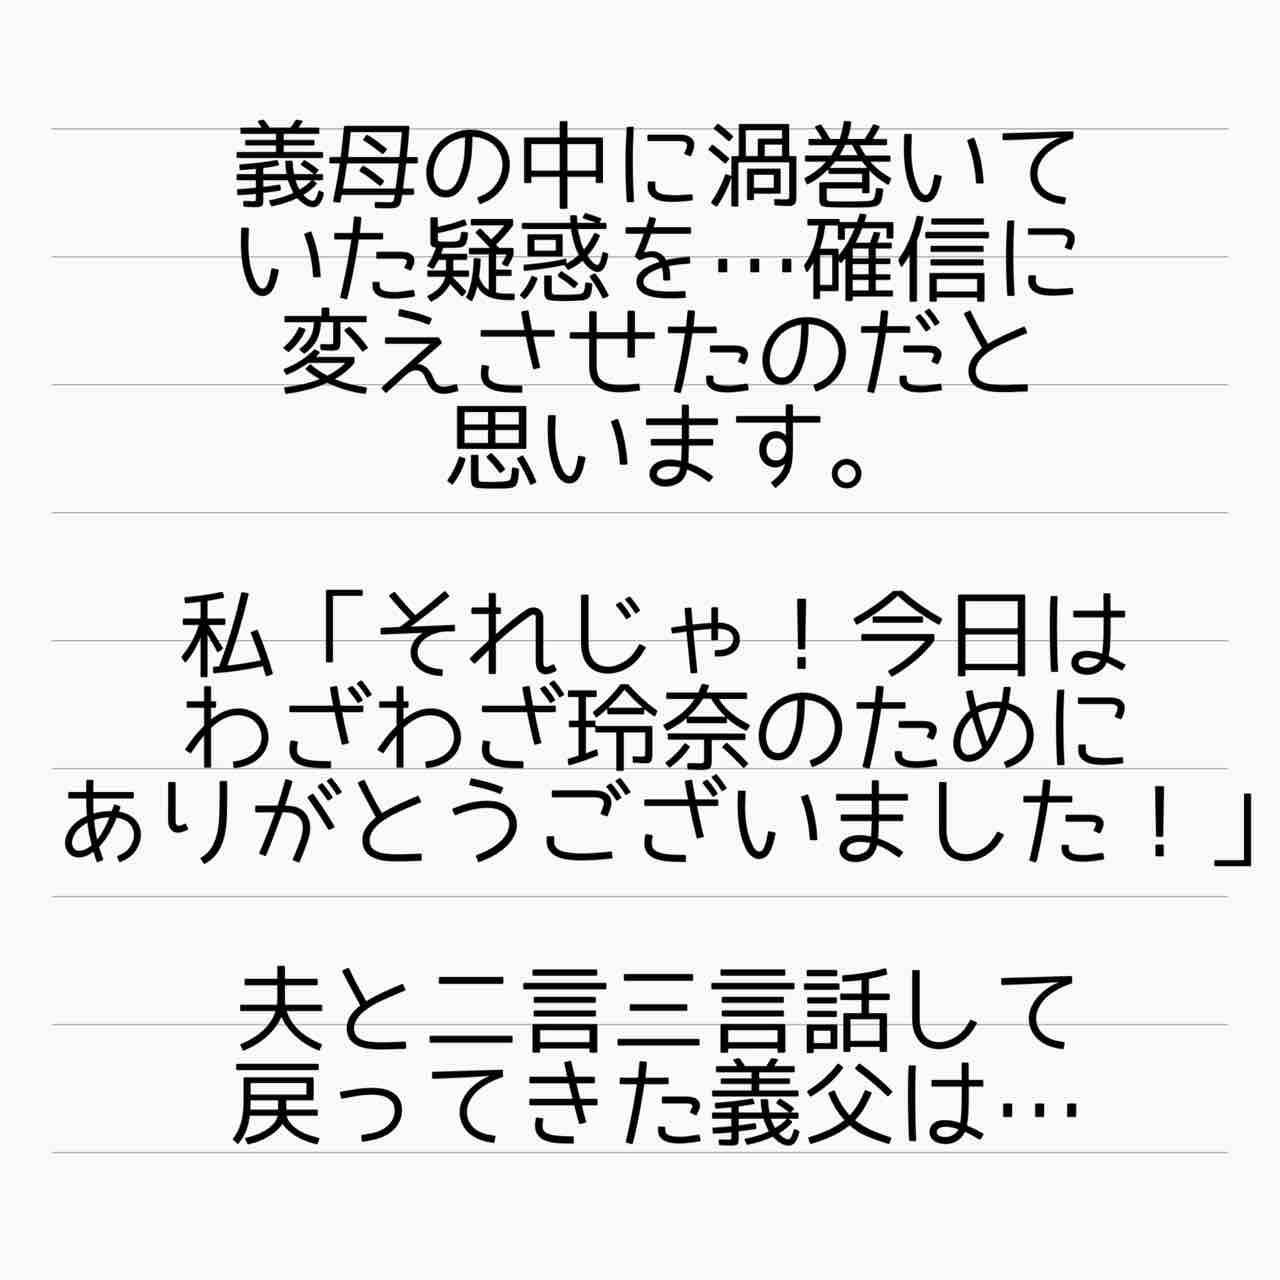 義母の中に渦巻いて
いた疑惑を…確信に
変えさせたのだと
思います。
私「それじゃ！今日は
わざわざ玲奈のために
ありがとうございました！」
夫と二言三言話して
戻ってきた義父は…